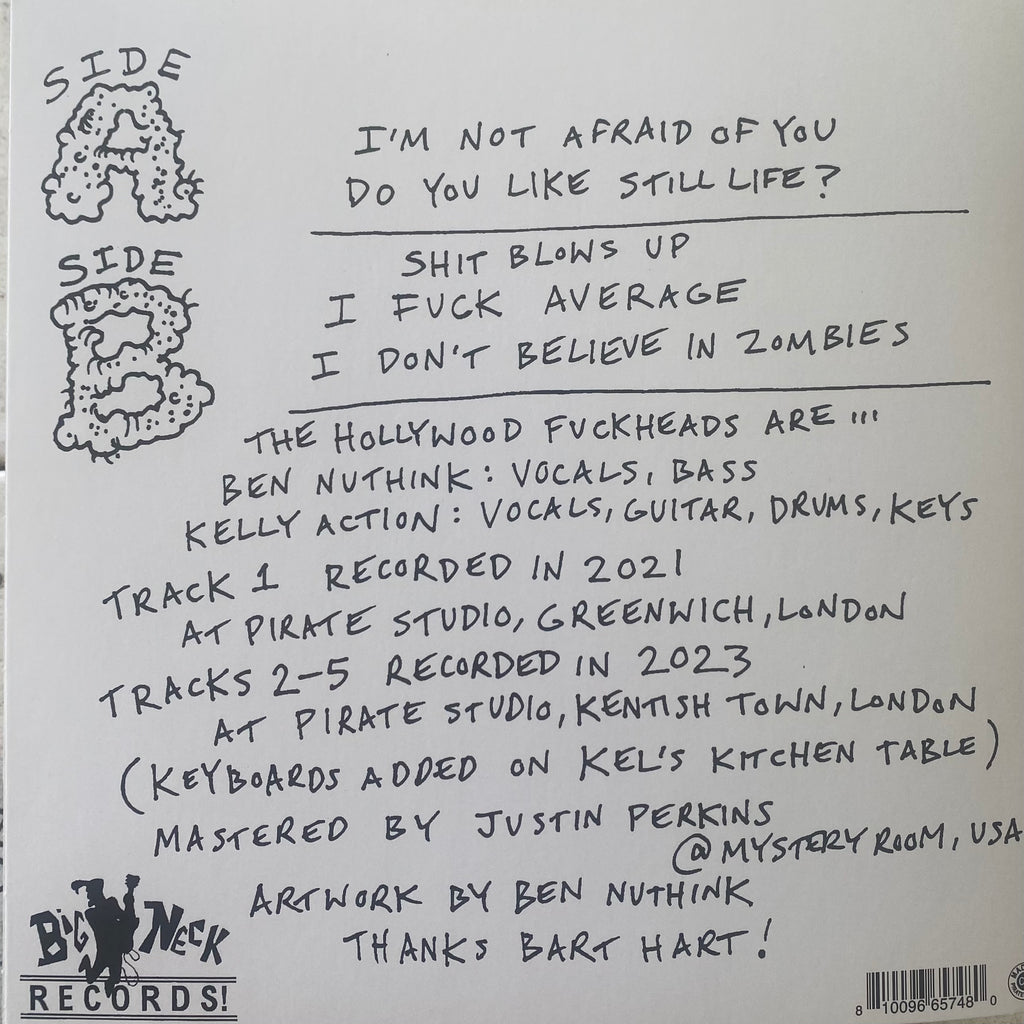 SIDE
A
I'M NOT AFRAID OF YOU
DO YOU LIKE STILL LIFE?
SIDE
B
SHIT BLOWS UP
I FUCK AVERAGE
I DON'T BELIEVE IN ZOMBIES
THE HOLLYWOOD FUCKHEADS ARE ...
BEN NUTHINK: VOCALS, BASS
KELLY ACTION: VOCALS, GUITAR, DRUMS, KEYS
TRACK 1 RECORDED IN 2021
AT PIRATE STUDIO, GREENWICH, LONDON
TRACKS 2-5 RECORDED IN 2023
AT PIRATE STUDIO, KENTISH TOWN, LONDON
(KEYBOARDS ADDED ON KEL'S KITCHEN TABLE)
MASTERED BY JUSTIN PERKINS
@ MYSTERY ROOM, USA
ARTWORK BY BEN NUTHINK
THANKS BART HART!
BIG NECK
RECORDS!
8 10096 65748 0